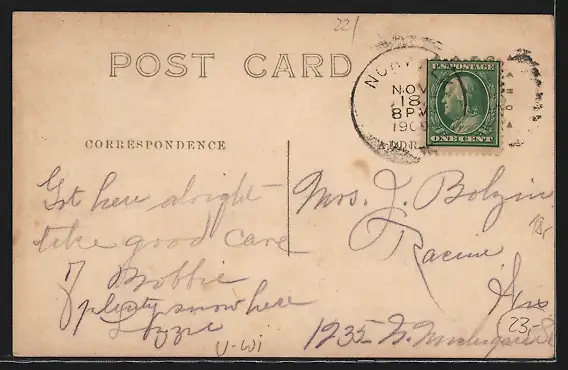 221
POST CARD
NOV
18
8 PM
190
U.S. POSTAGE
ONE CENT
CORRESPONDENCE
ADDR
Got here alright
take good care
of Bobbie
plenty snow here
Lizzie
Mrs. J. Bolzin
Racine
Wis
1235 N.
U-Wi
23,-